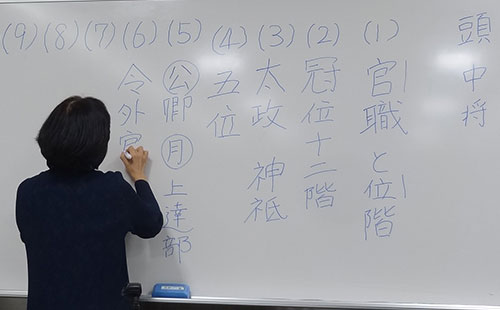 頭中将
(1) 官職と位階
(2) 冠位十二階
(3) 太政 神祇
(4) 五位
(5) 公卿 月 上達部
(6) 令外官
(7)
(8)
(9)